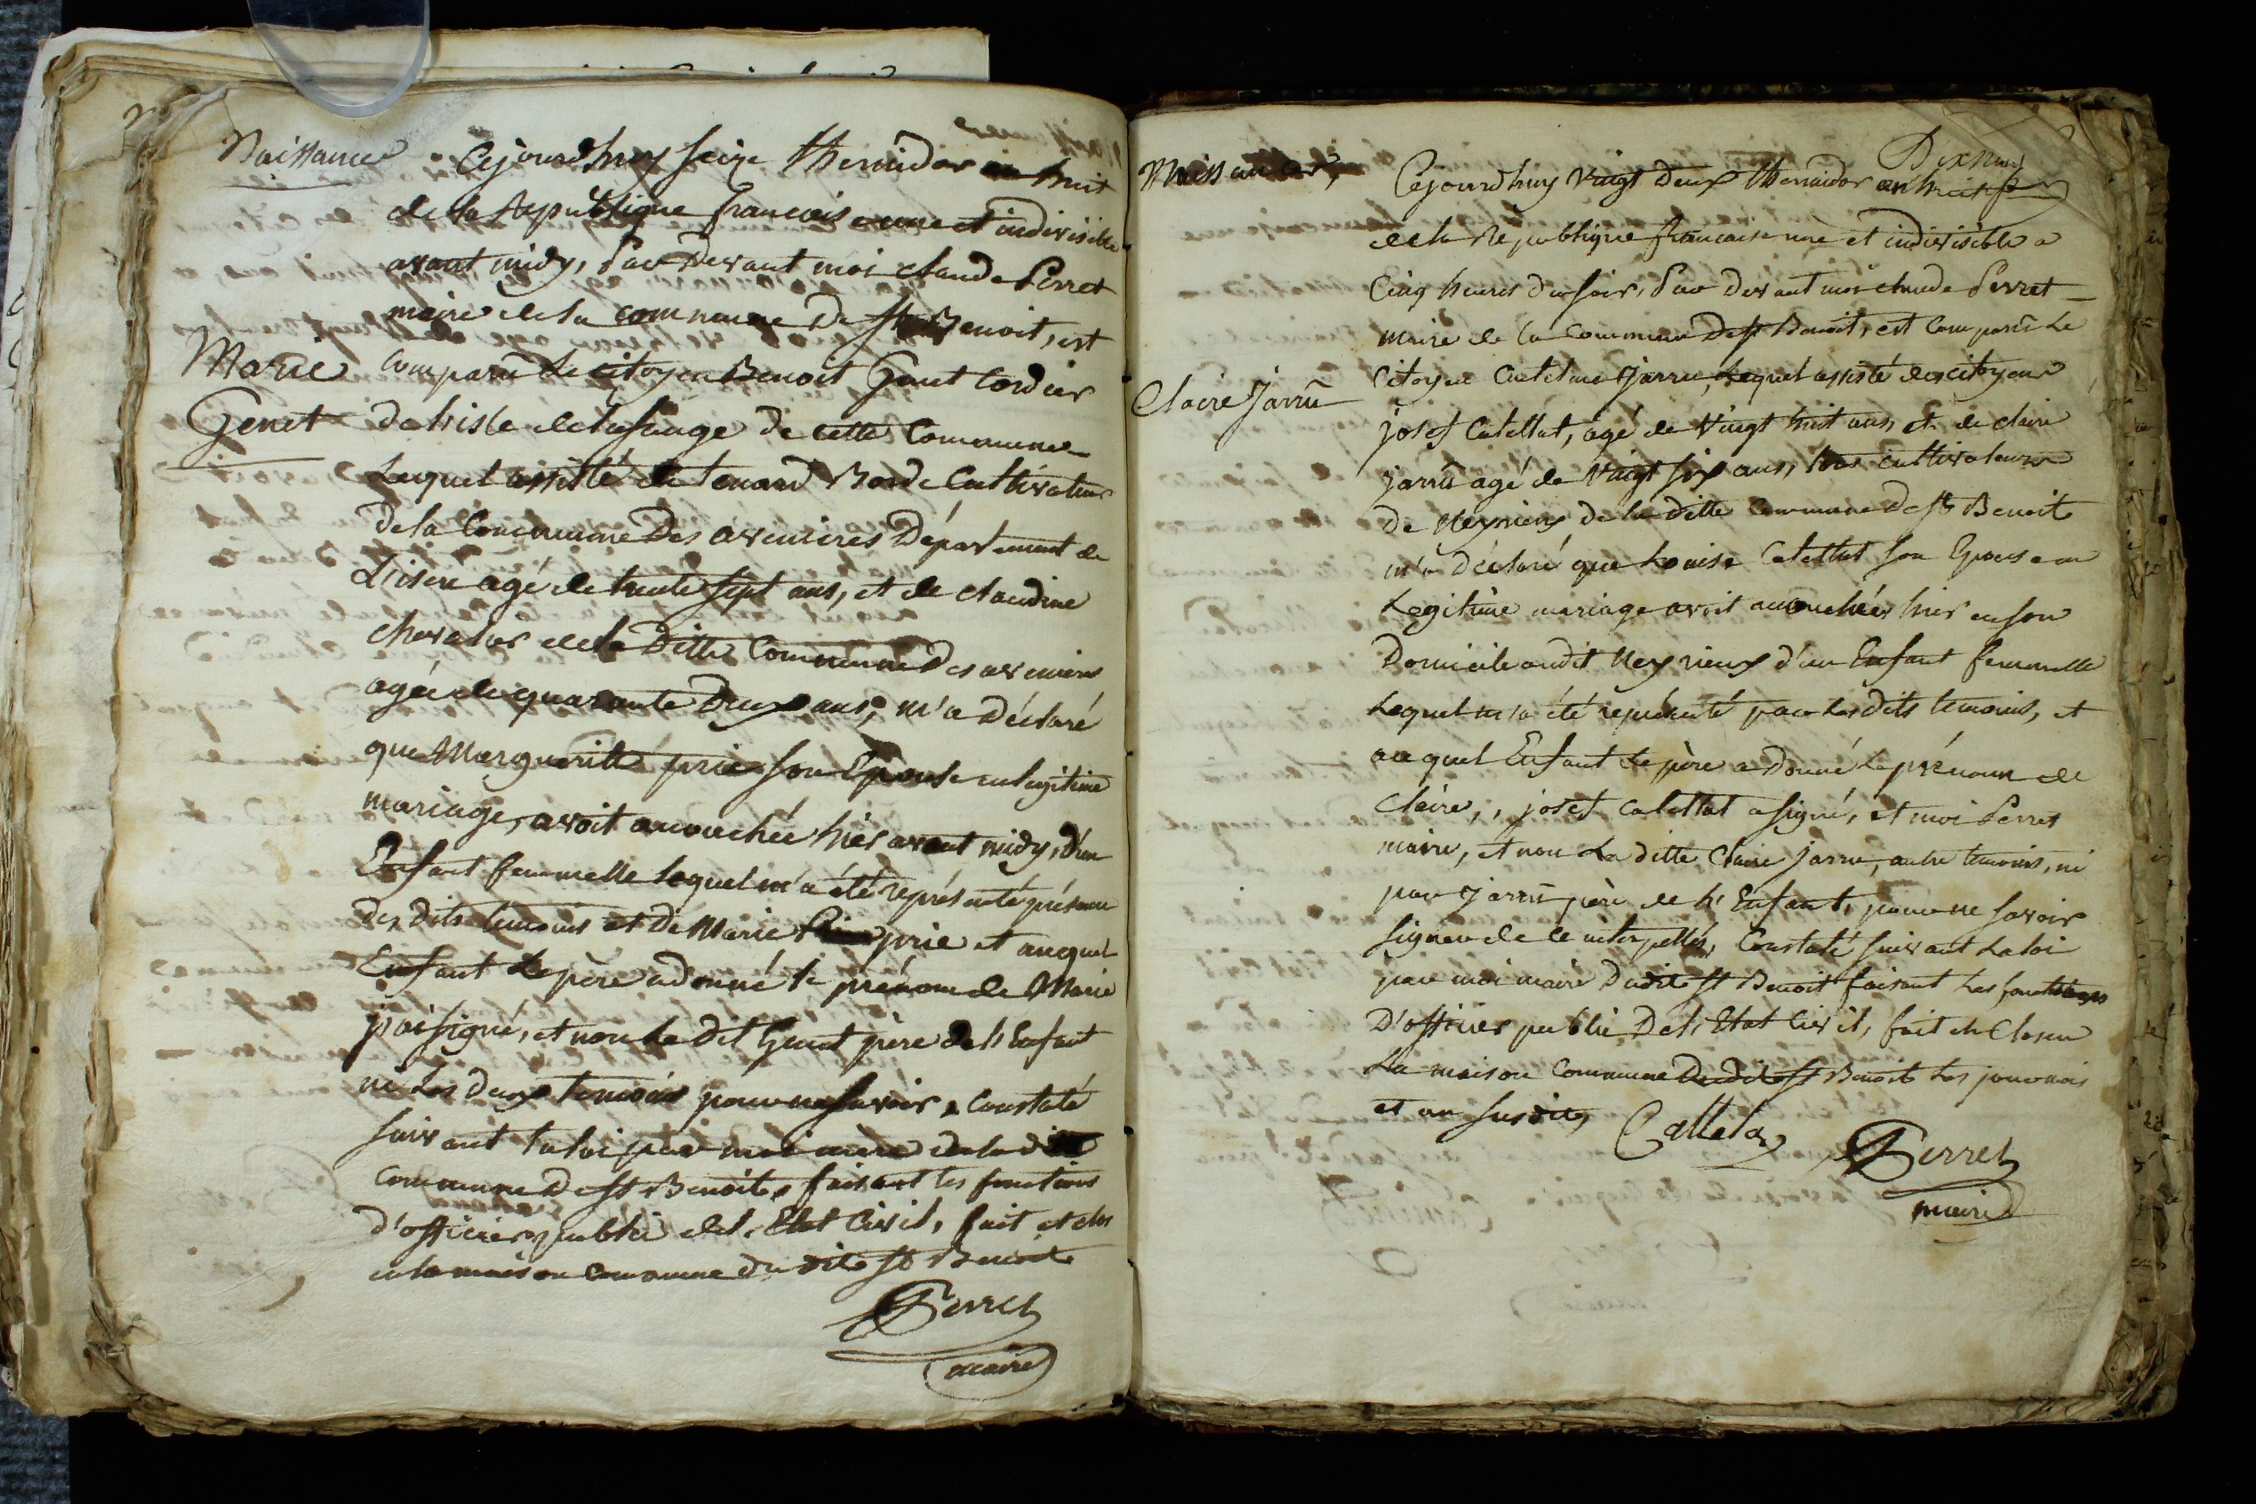 Naissance
Cejourdhuy seize thermidor an huit
de la Republique francois e une et indivisible
avant midy, Par Devant moi claude Perret
maire de la commune De st Benoit, est
Marie
Genet
comparu Le citoyen Benoit Genet Cordier
De hisle de la sauge de cette Commune
Lequel assisté de Borde Cultivateur
De la Commune Des avenieres Département de
L'isere agé de trente sept ans, et de claudine
chevalier de la Ditte Commune Des avenieres
agée de quarante Deux ans, m'a Déclaré
que Margueritte prie son Epouse en legitime
mariage, avoit accouchée hier avant midy, d'un
Enfant femmelle lequel m'a été représenté présence
des dits temoins et De Marie prie et auquel
Enfant Le père a donné le prénom de Marie
j'ai signé, et non Le dit Genet père de l'Enfant
ni Les deux temoins pour ne savoir, Constaté
suivant la loi par moi maire de la ditte
Commune De st Benoit, faisant les fonctions
d'officier public de l'Etat Civil, fait et clos
en la maison commune du dit st Benoit
Perret
maire
Dix neuf
Naissance
Cejourdhuy Vingt Deux thermidor an huit
de la Republique francaise une et indivisible a
Cinq heures du soir, Par Devant moi claude Perret
maire de la Commune De st Benoit, est Comparu Le
Claire Jarru
Citoyen Jarru, Lequel assisté des citoyens
josef Catellat, agé de Vingt huit ans, et de claire
jarrû agé de Vingt six ans, tous cultivateurs
De Meyrieux de la ditte Commune De st Benoit
m'a Déclaré que Louise Catellat son Epouse en
Legitime mariage avoit accouchée, hier en son
Domicile audit Meyrieux d'un Enfant femmelle
Lequel m'a été représenté par Les dits temoins, et
auquel Enfant Le père a donné Le prénom de
Claire,, josef catellat a signé, et moi Perret
maire, et non La ditte Claire Jarru, autre temoins, ni
par Jarrû père de l'Enfant, pour ne savoir
signer de ce interpellés, Constaté suivant La loi
par moi maire Dudit st Benoit faisant Les fonctions
D'officier public De l'Etat Civil, fait et Clos en
La maison Commune Dudit st Benoit Les jour mois
et an susdits,
Cattela
Perret
maire